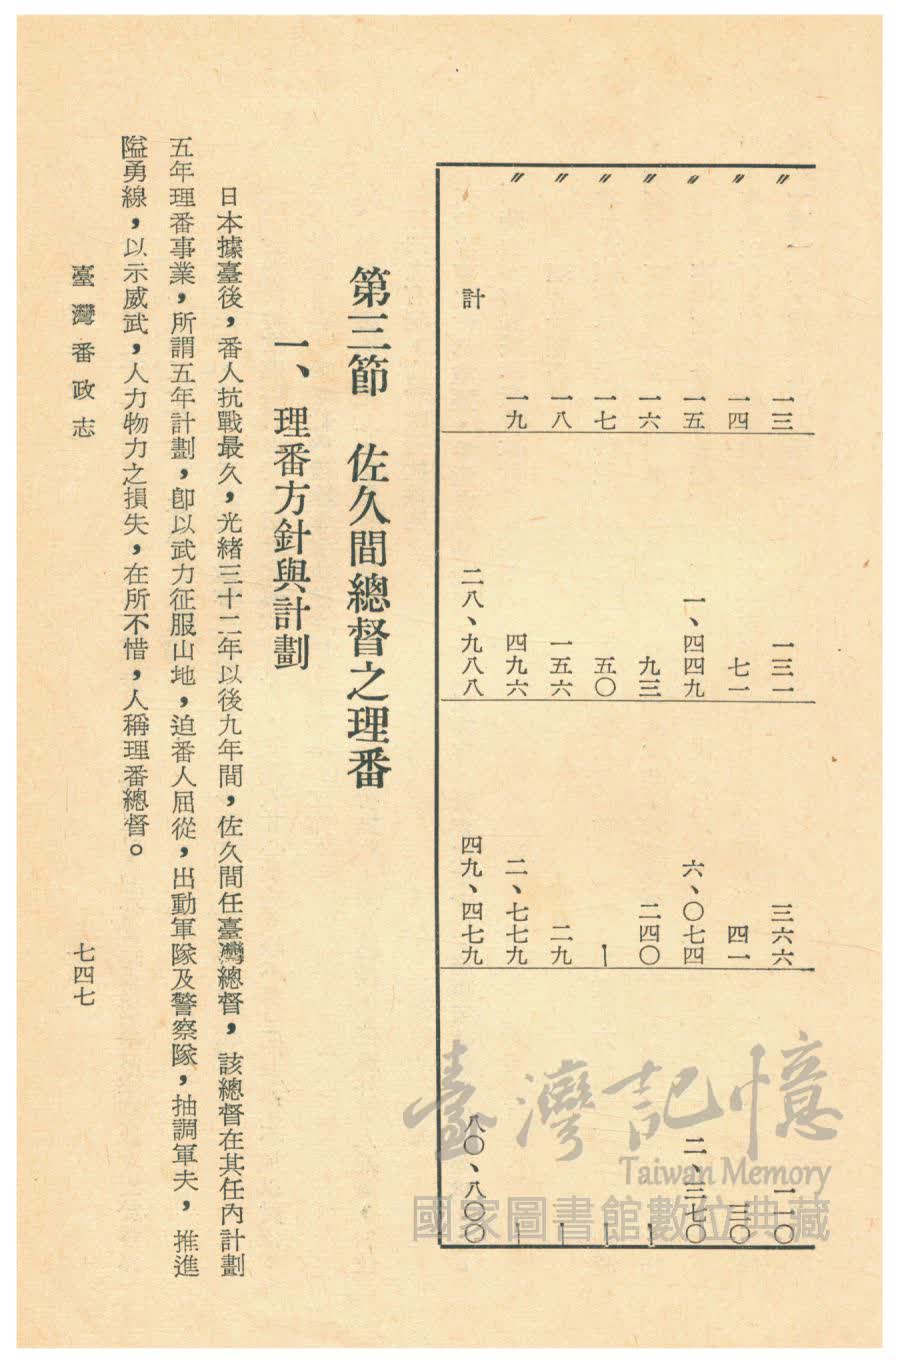 〃 一三 一三一 三六六 一一〇
〃 一四 七一 四一 三〇
〃 一五 一、四四九 六、〇七四 二、三七〇
〃 一六 九三 二四〇 ｜
〃 一七 五〇 ｜ ｜
〃 一八 一五六 二九 ｜
〃 一九 四九六 二、七七九 ｜
計 二八、九八八 四九、四七九 八〇、八〇〇
第三節　佐久間總督之理番
一、理番方針與計劃
日本據臺後，番人抗戰最久，光緒三十二年以後九年間，佐久間任臺灣總督，該總督在其任內計劃
五年理番事業，所謂五年計劃，卽以武力征服山地，迫番人屈從，出動軍隊及警察隊，抽調軍夫，推進
隘勇線，以示威武，人力物力之損失，在所不惜，人稱理番總督。
臺灣番政志
七四七
臺灣記憶
Taiwan Memory
國家圖書館數位典藏